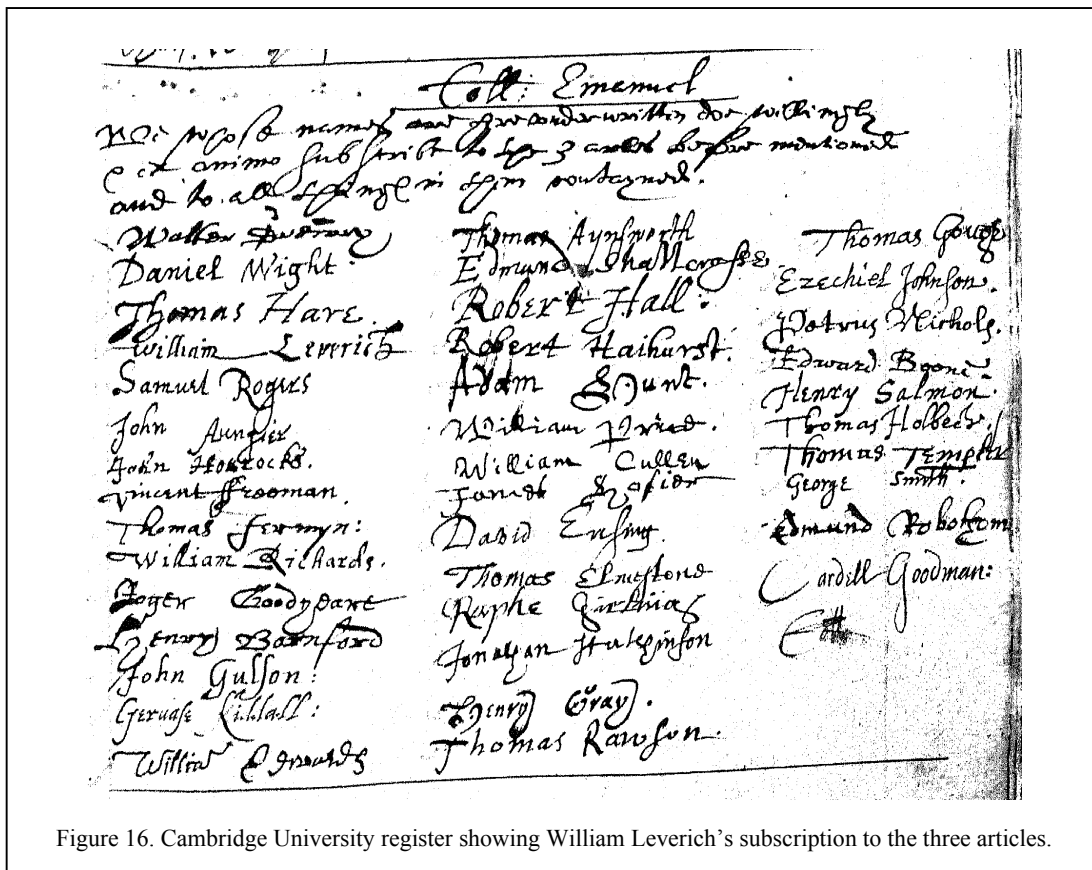 Coll: Emanuel
We whose names are hereunder written doe willingly
& ex animo subscribe to the 3 articles before mentioned
and to all things in them contayned.
Walter
Daniel Wight.
Thomas Hare.
William Leverich
Samuel Rogers
John Aungier
John Horrocks.
Vincent Freeman.
Thomas Jermyn:
William Richards.
Roger Goodyeare
Henry Barnford
John Gulson:
Gervase
William Edwards
Thomas Aynsworth
Edmund Shallcrosse
Robert Hall:
Robert Haihurst.
Adam Hunt.
William
William Cullen
James
David Ensing.
Thomas Elmestone
Raphe
Jonathan Hutchinson
Henry Gray.
Thomas Rawson.
Thomas Gouge
Ezechiel Johnson.
Petrus Nichols.
Edward Boone.
Henry Salmon.
Thomas Holbech.
Thomas Templer
George Smith.
Edmund Robothom
Cardell Goodman:
Figure 16. Cambridge University register showing William Leverich’s subscription to the three articles.